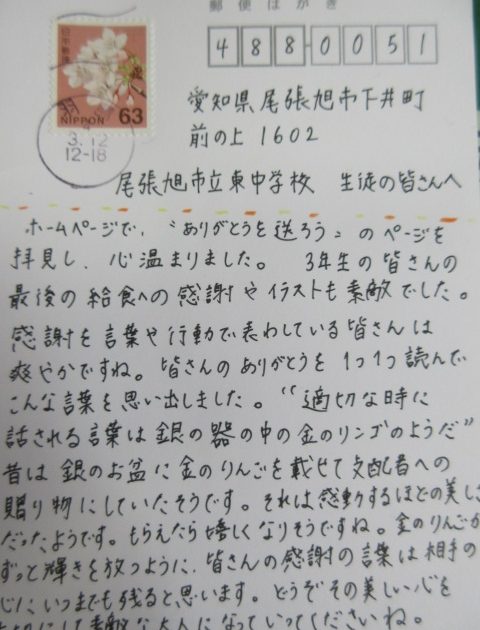 郵便はがき
日本郵便
NIPPON
63
4880051
3.12
12-18
愛知県尾張旭市下井町
前の上1602
尾張旭市立東中学校 生徒の皆さんへ
ホームページで、“ありがとうを送ろう”のページを
拝見し、心温まりました。 3年生の皆さんの
最後の給食への感謝やイラストも素敵でした。
感謝を言葉や行動で表わしている皆さんは
爽やかですね。皆さんのありがとうを1つ1つ読んで
こんな言葉を思い出しました。“適切な時に
話される言葉は銀の器の中の金のリンゴのようだ”
昔は銀のお盆に金のりんごを載せて支配者への
贈り物にしていたそうです。それは感動するほどの美し
だったようです。もらえたら嬉しくなりそうですね。金のりんごが
ずっと輝きを放つように、皆さんの感謝の言葉は相手の
心にいつまでも残ると思います。どうぞその美しい心を
にして素敵な大人になっていってくださいね。